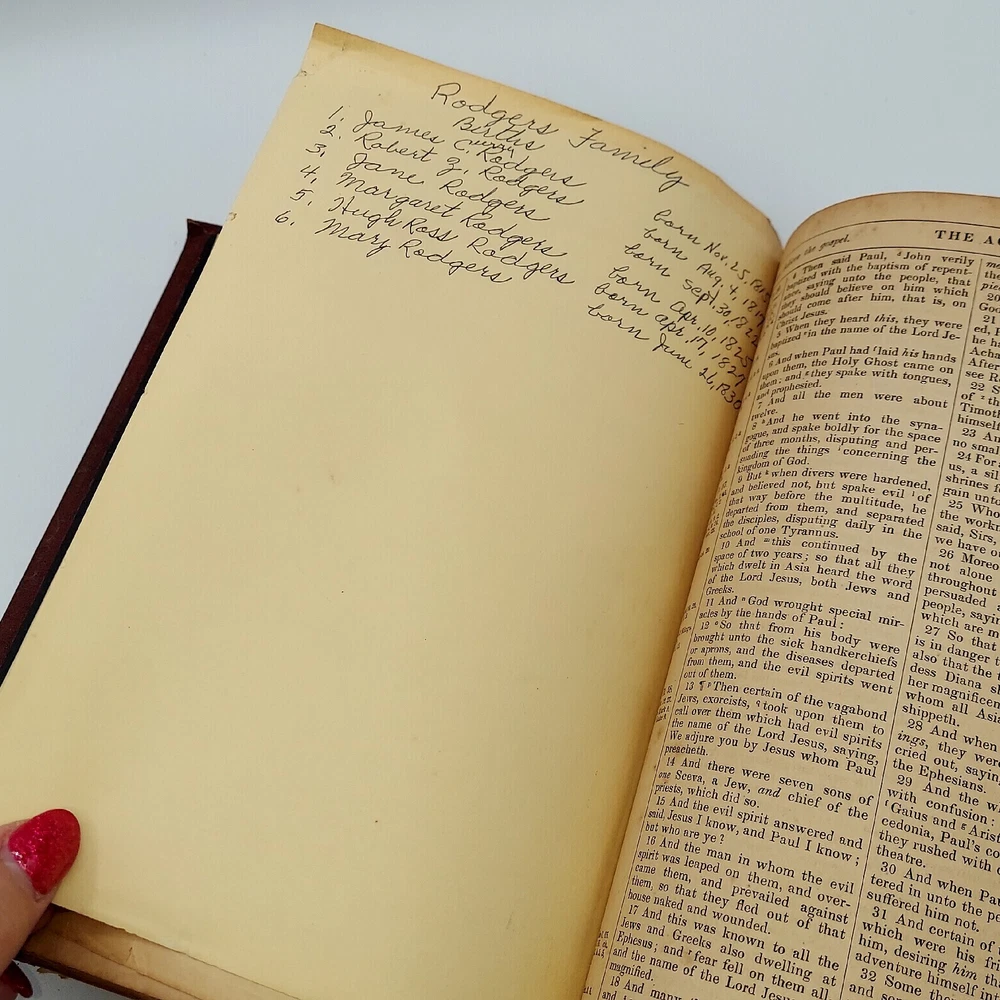 Rodgers Family
Births
1. James C. Rodgers born Nov. 25,
2. Robert Z. Rodgers born Aug. 4,
3. Jane Rodgers born Sept. 30, 1822
4. Margaret Rodgers born Apr. 10, 1825
5. Hugh Ross Rodgers born Apr. 17, 1827
6. Mary Rodgers born June 26, 1830
the gospel.
4 Then said Paul, John verily
baptized with the baptism of repent-
ance, saying unto the people, that
they should believe on him which
should come after him, that is, on
Christ Jesus.
5 When they heard this, they were
baptized in the name of the Lord Je-
sus.
6 And when Paul had laid his hands
upon them, the Holy Ghost came on
them; and they spake with tongues,
and prophesied.
7 And all the men were about
twelve.
8 And he went into the syna-
gogue, and spake boldly for the space
of three months, disputing and per-
suading the things concerning the
kingdom of God.
9 But when divers were hardened,
and believed not, but spake evil of
that way before the multitude, he
departed from them, and separated
the disciples, disputing daily in the
school of one Tyrannus.
10 And this continued by the
space of two years; so that all they
which dwelt in Asia heard the word
of the Lord Jesus, both Jews and
Greeks.
11 And God wrought special mir-
acles by the hands of Paul:
12 So that from his body were
brought unto the sick handkerchiefs
or aprons, and the diseases departed
from them, and the evil spirits went
out of them.
13 ¶ Then certain of the vagabond
Jews, exorcists, took upon them to
call over them which had evil spirits
the name of the Lord Jesus, saying,
We adjure you by Jesus whom Paul
preacheth.
14 And there were seven sons of
one Sceva, a Jew, and chief of the
priests, which did so.
15 And the evil spirit answered and
said, Jesus I know, and Paul I know;
but who are ye?
16 And the man in whom the evil
spirit was leaped on them, and over-
came them, and prevailed against
them, so that they fled out of that
house naked and wounded.
17 And this was known to all the
Jews and Greeks also dwelling at
Ephesus; and fear fell on them all
and the name of the Lord Jesus
magnified.
18 And many
THE
21
22
Timoth
himself
23 An
no smal
24 For
us, a sil
shrines f
gain unto
25 Who
the workn
said, Sirs,
we have o
26 Moreo
not alone
throughout
persuaded
people, sayin
which are m
27 So that
is in danger t
also that the t
dess Diana sh
her magnificen
whom all Asia
shippeth.
28 And when
ings, they were
cried out, sayin
the Ephesians.
29 And the w
with confusion:
Gaius and Arist
cedonia, Paul's co
they rushed with
theatre.
30 And when Pau
tered in unto the pe
suffered him not.
31 And certain of
which were his fri
him, desiring him th
adventure himself in
32 Some the